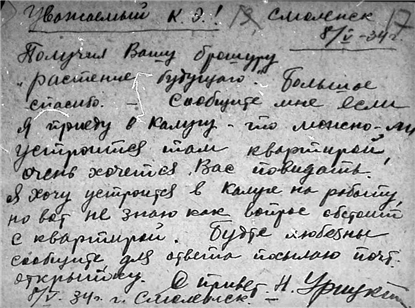 Уважаемый К.Э.! Смоленск 17
8/V-34г.
Получил Вашу брошуру
"растение будущего". Большое
спасибо. — Сообщите мне если
я приеду в Калугу - то можно-ли
устроится там квартирой,
очень хочется Вас повидать.
Я хочу устроится в Калуге на работу,
но вот не знаю как вопрос обстоит
с квартирой. Будте любезны
сообщите для ответа посылаю почт.
открытку. С привет. Н.
8/V-34г. г. Смоленск -